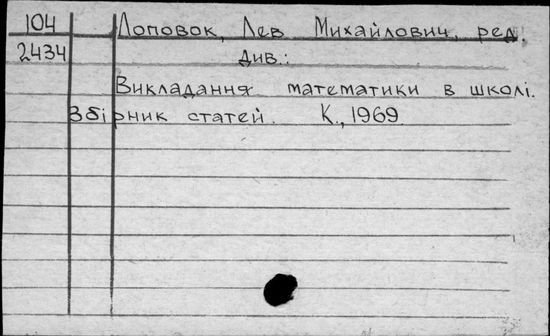 104 Лоповок, Лев Михайлович, ред.
2434 Див.:
Викладання математики в школі.
Збірник статей. К., 1969